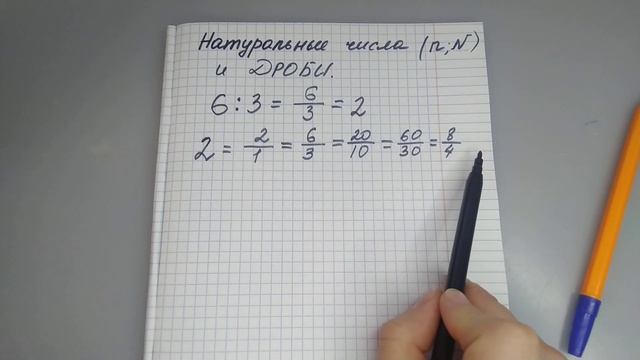 Натуральные числа (n; N)
и ДРОБИ.
6 : 3 = 6/3 = 2
2 = 2/1 = 6/3 = 20/10 = 60/30 = 8/4